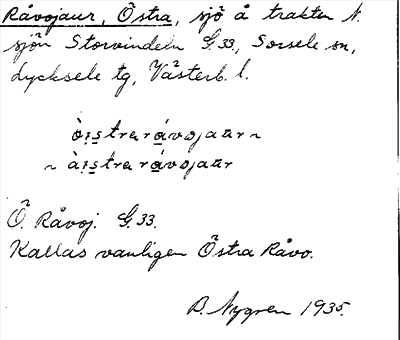 Råvojaur, Östra, sjö å trakten N.
sjön Storvindeln G. 33., Sorsele sn,
Lycksele tg, Västerb. l.
òi̯s̱trerά̱vo̱jaūr ~
~ ài̯s̱trerά̱vo̱jaūr
Ö. Råvoj. G. 33.
Kallas vanligen Östra Råvo.
B. Nygren 1935.